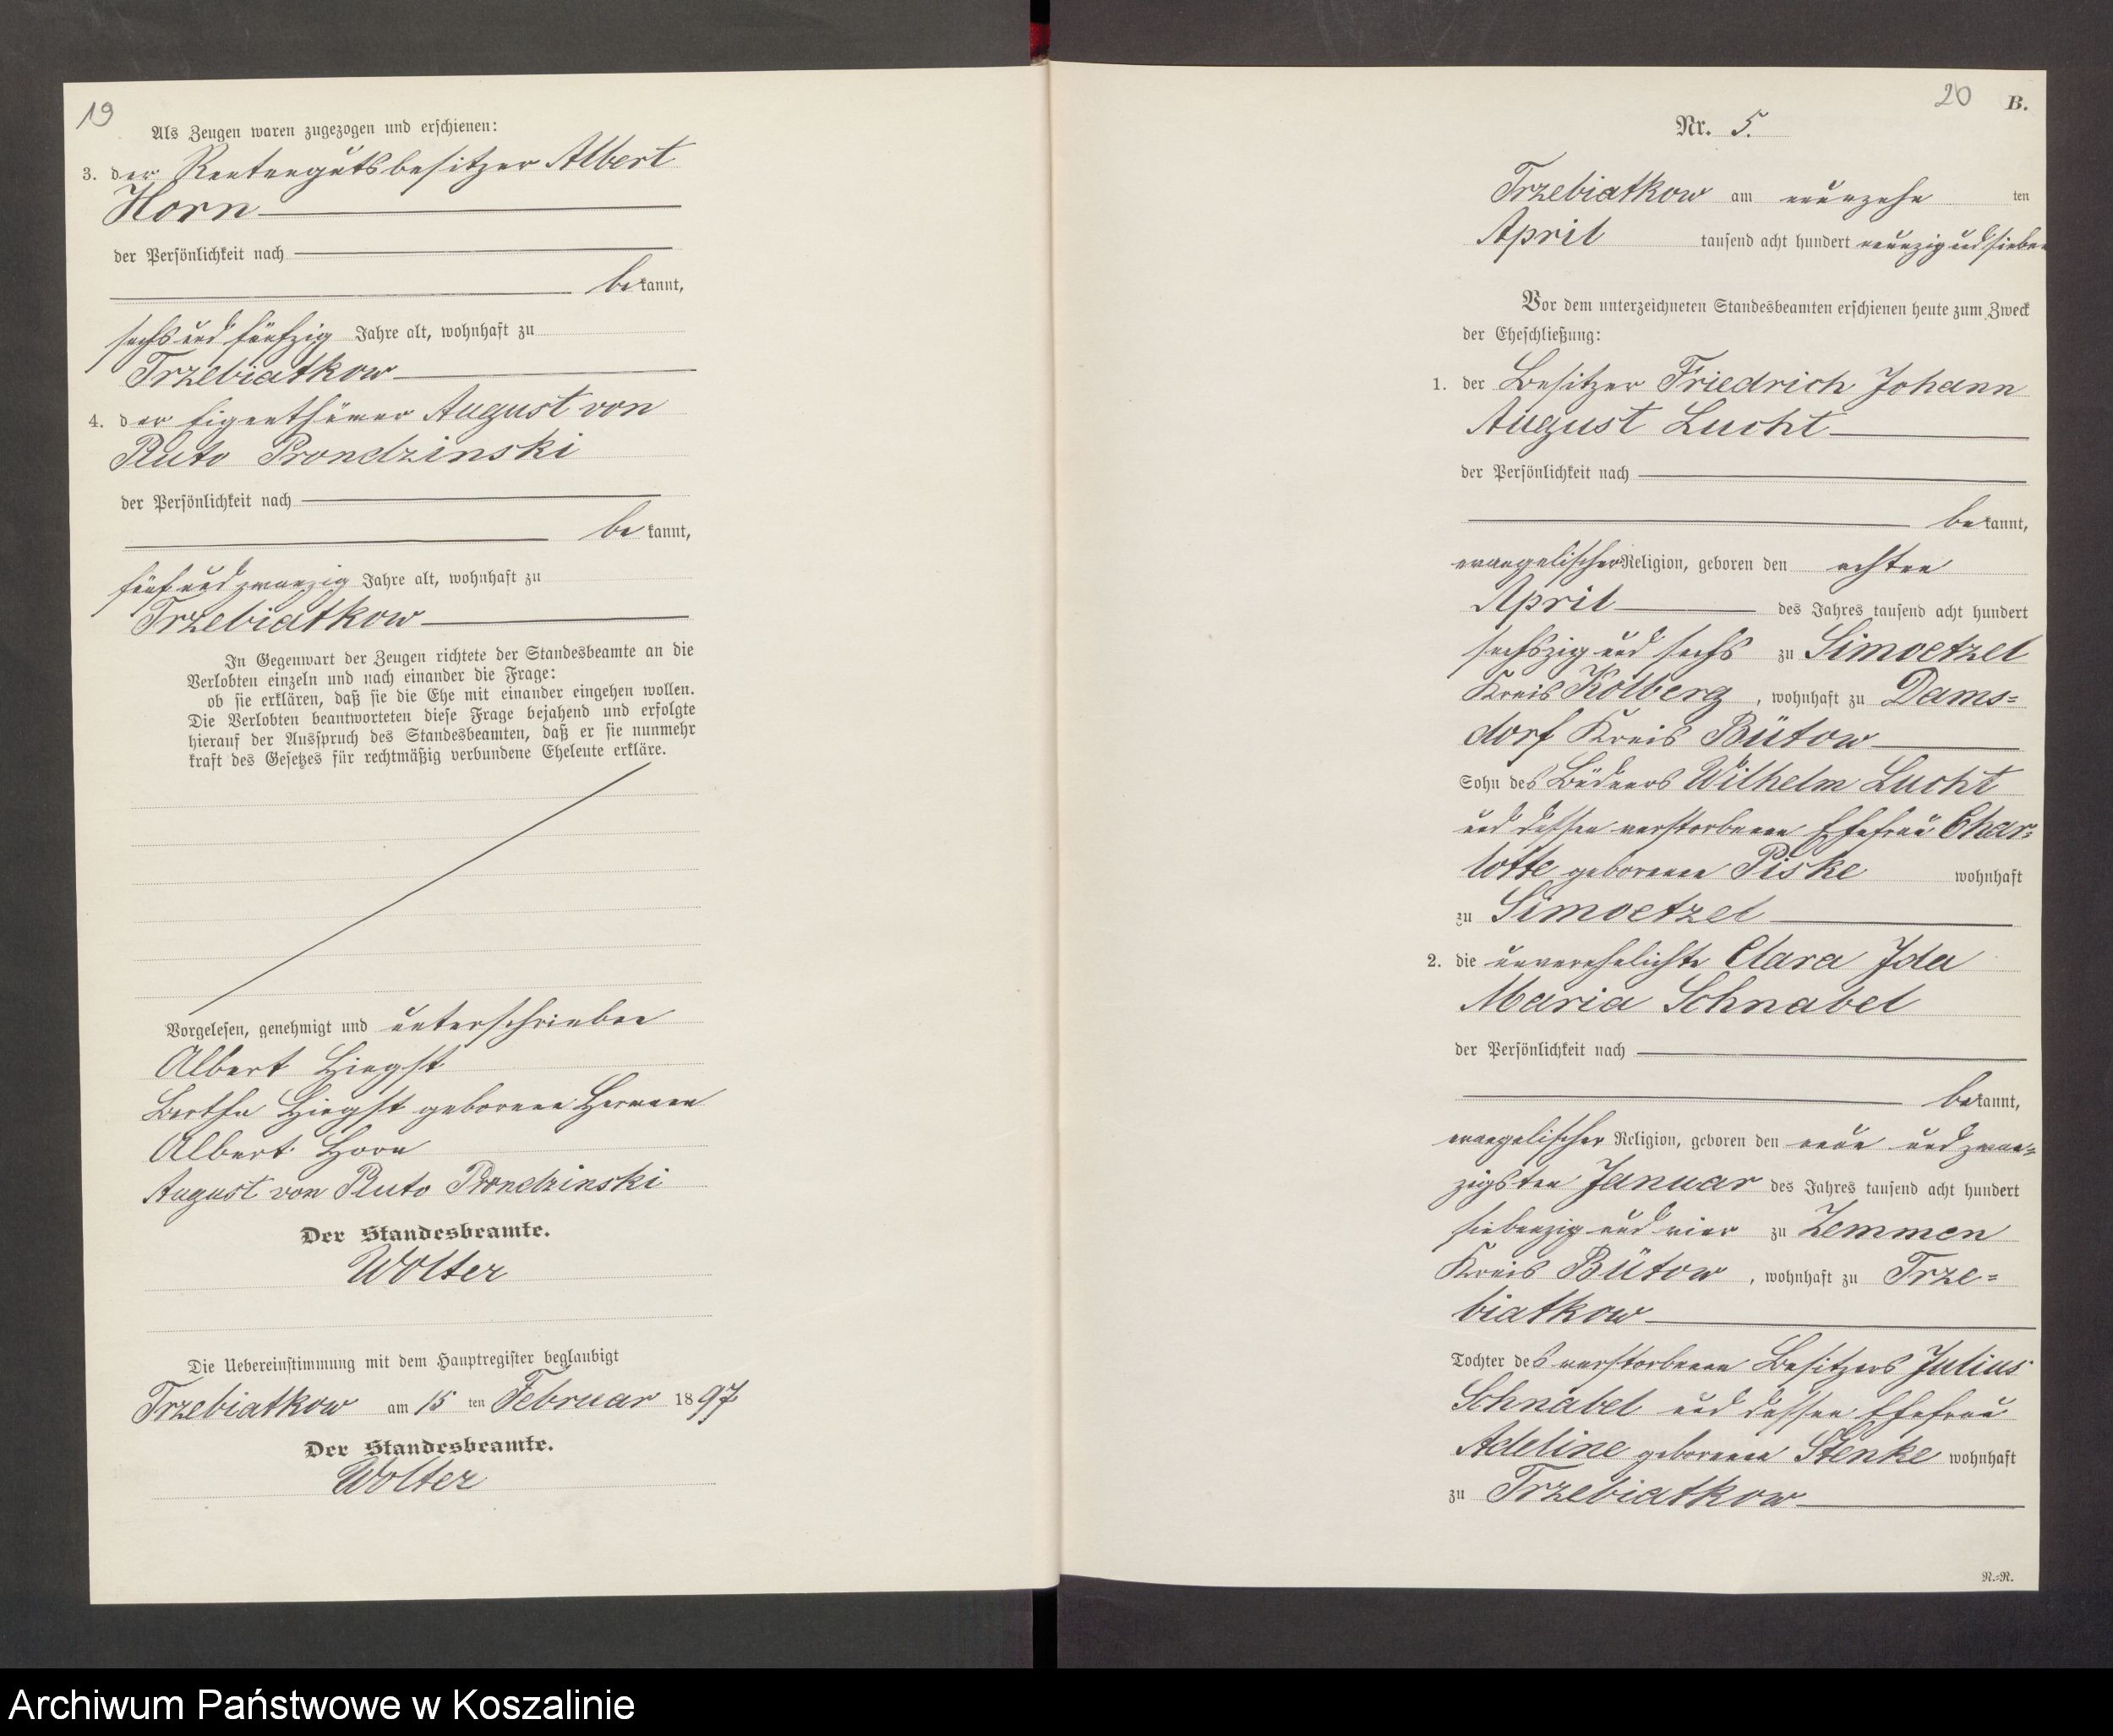 19
Als Zeugen waren zugezogen und erschienen:
3. der Rentengutsbesitzer Albert
Horn
der Persönlichkeit nach
bekannt,
sechs und fünfzig Jahre alt, wohnhaft zu
Trzebiatkow
4. der Eigenthümer August von
Pluto Prondzinski
der Persönlichkeit nach
bekannt,
fünf und zwanzig Jahre alt, wohnhaft zu
Trzebiatkow
In Gegenwart der Zeugen richtete der Standesbeamte an die
Verlobten einzeln und nach einander die Frage:
ob sie erklären, daß sie die Ehe mit einander eingehen wollen.
Die Verlobten beantworteten diese Frage bejahend und erfolgte
hierauf der Ausspruch des Standesbeamten, daß er sie nunmehr
kraft des Gesetzes für rechtmäßig verbundene Eheleute erkläre.
Vorgelesen, genehmigt und unterschrieben
Albert
Bertha geborene Hermann
Albert Horn
August von Pluto Prondzinski
Der Standesbeamte.
Wolter
Die Uebereinstimmung mit dem Hauptregister beglaubigt
Trzebiatkow am 15 ten Februar 1897
Der Standesbeamte.
Wolter
20 B.
Nr. 5.
Trzebiatkow am neunzehn ten
April tausend acht hundert neunzig und sieben
Vor dem unterzeichneten Standesbeamten erschienen heute zum Zweck
der Eheschließung:
1. der Besitzer Friedrich Johann
August Lucht
der Persönlichkeit nach
bekannt,
evangelischer Religion, geboren den achten
April des Jahres tausend acht hundert
sechszig und sechs zu Simoetzel
Kreis Kolberg, wohnhaft zu Dams=
dorf Kreis Bütow
Sohn des Büdners Wilhelm Lucht
und dessen verstorbenen Ehefrau Char=
lotte geborenen Piske wohnhaft
zu Simoetzel
2. die unverehelichte Clara Ida
Maria Schnabel
der Persönlichkeit nach
bekannt,
evangelischer Religion, geboren den neun und zwan=
zigsten Januar des Jahres tausend acht hundert
siebenzig und vier zu Zemmen
Kreis Bütow, wohnhaft zu Trze=
biatkow
Tochter des verstorbenen Besitzers Julius
Schnabel und dessen Ehefrau
Adeline geborenen Stenke wohnhaft
zu Trzebiatkow
N.=N.
Archiwum Państwowe w Koszalinie